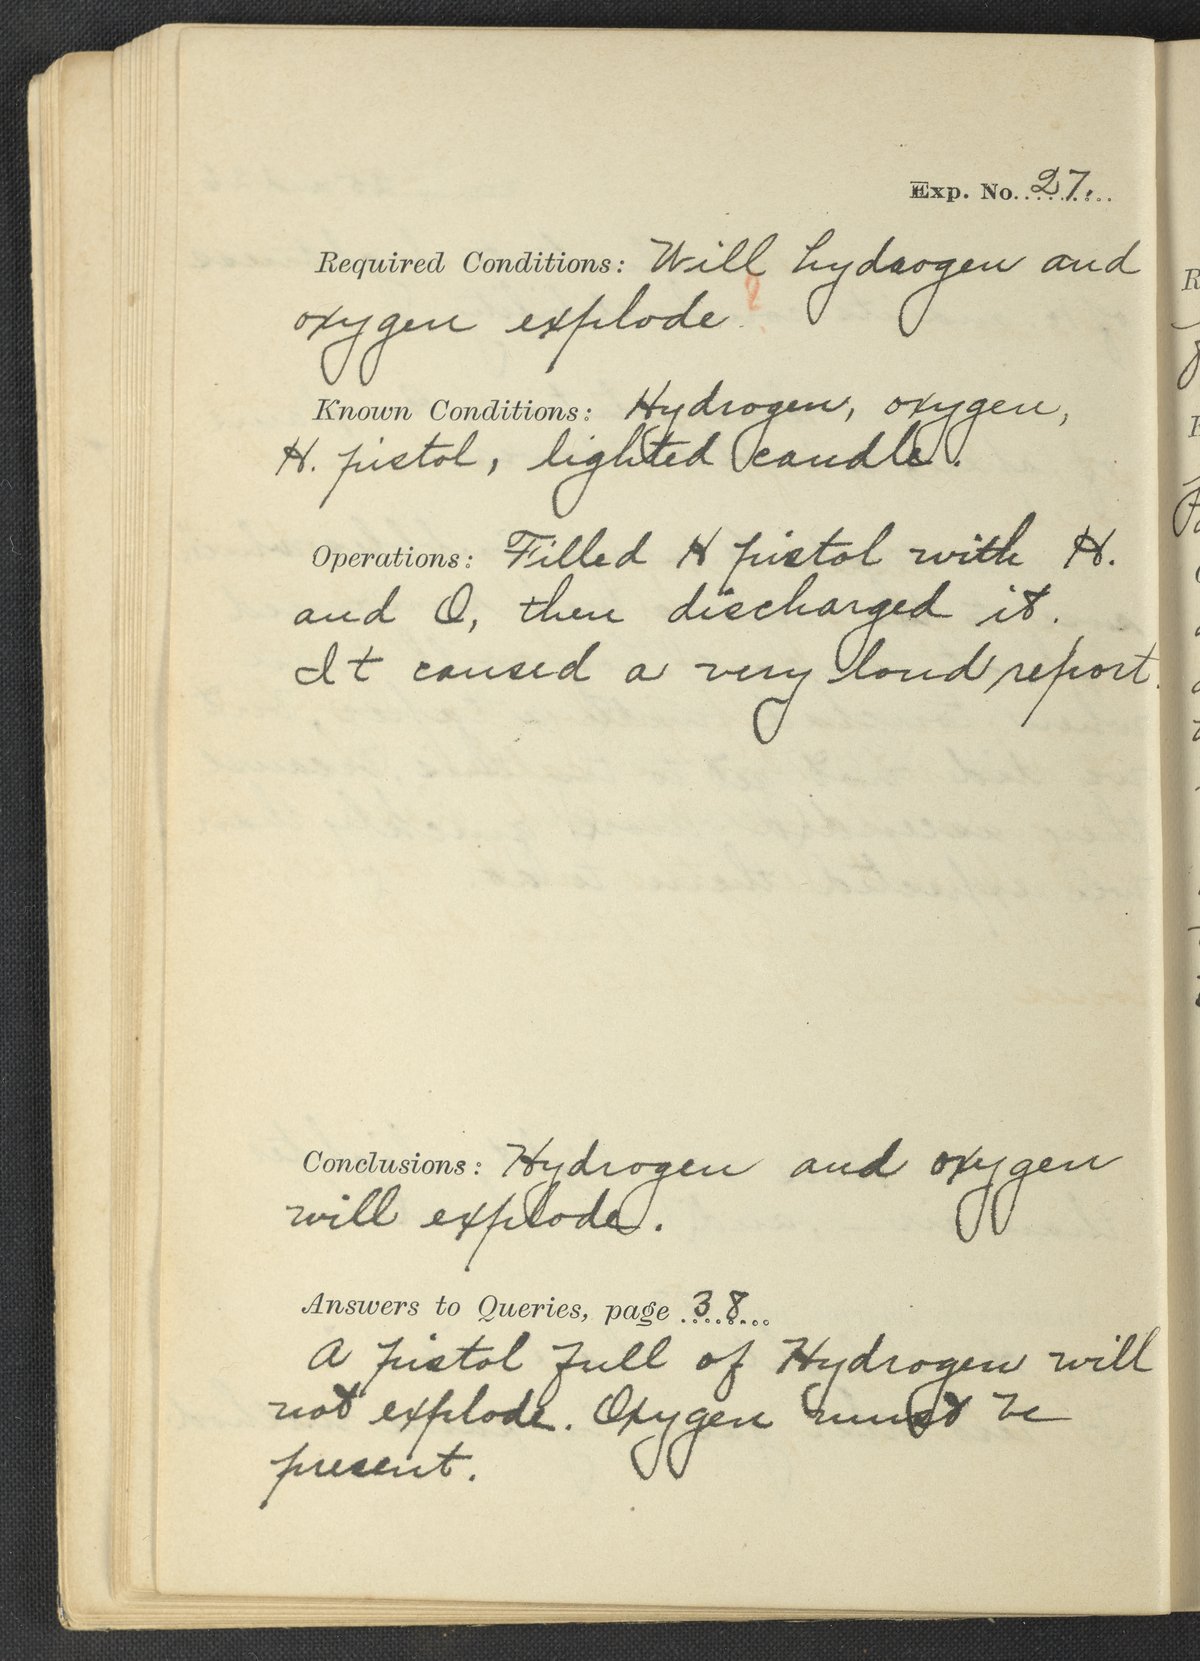 Exp. No. 27.
Required Conditions: Will hydrogen and
oxygen explode ?
Known Conditions: Hydrogen, oxygen,
H. pistol, lighted candle.
Operations: Filled H pistol with H.
and O, then discharged it.
It caused a very loud report.
Conclusions: Hydrogen and oxygen
will explode.
Answers to Queries, page 38
A pistol full of Hydrogen will
not explode. Oxygen must be
present.